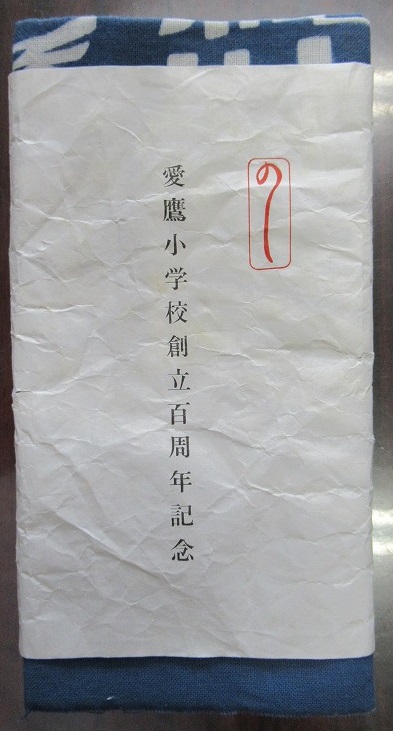 のし
愛鷹小学校創立百周年記念